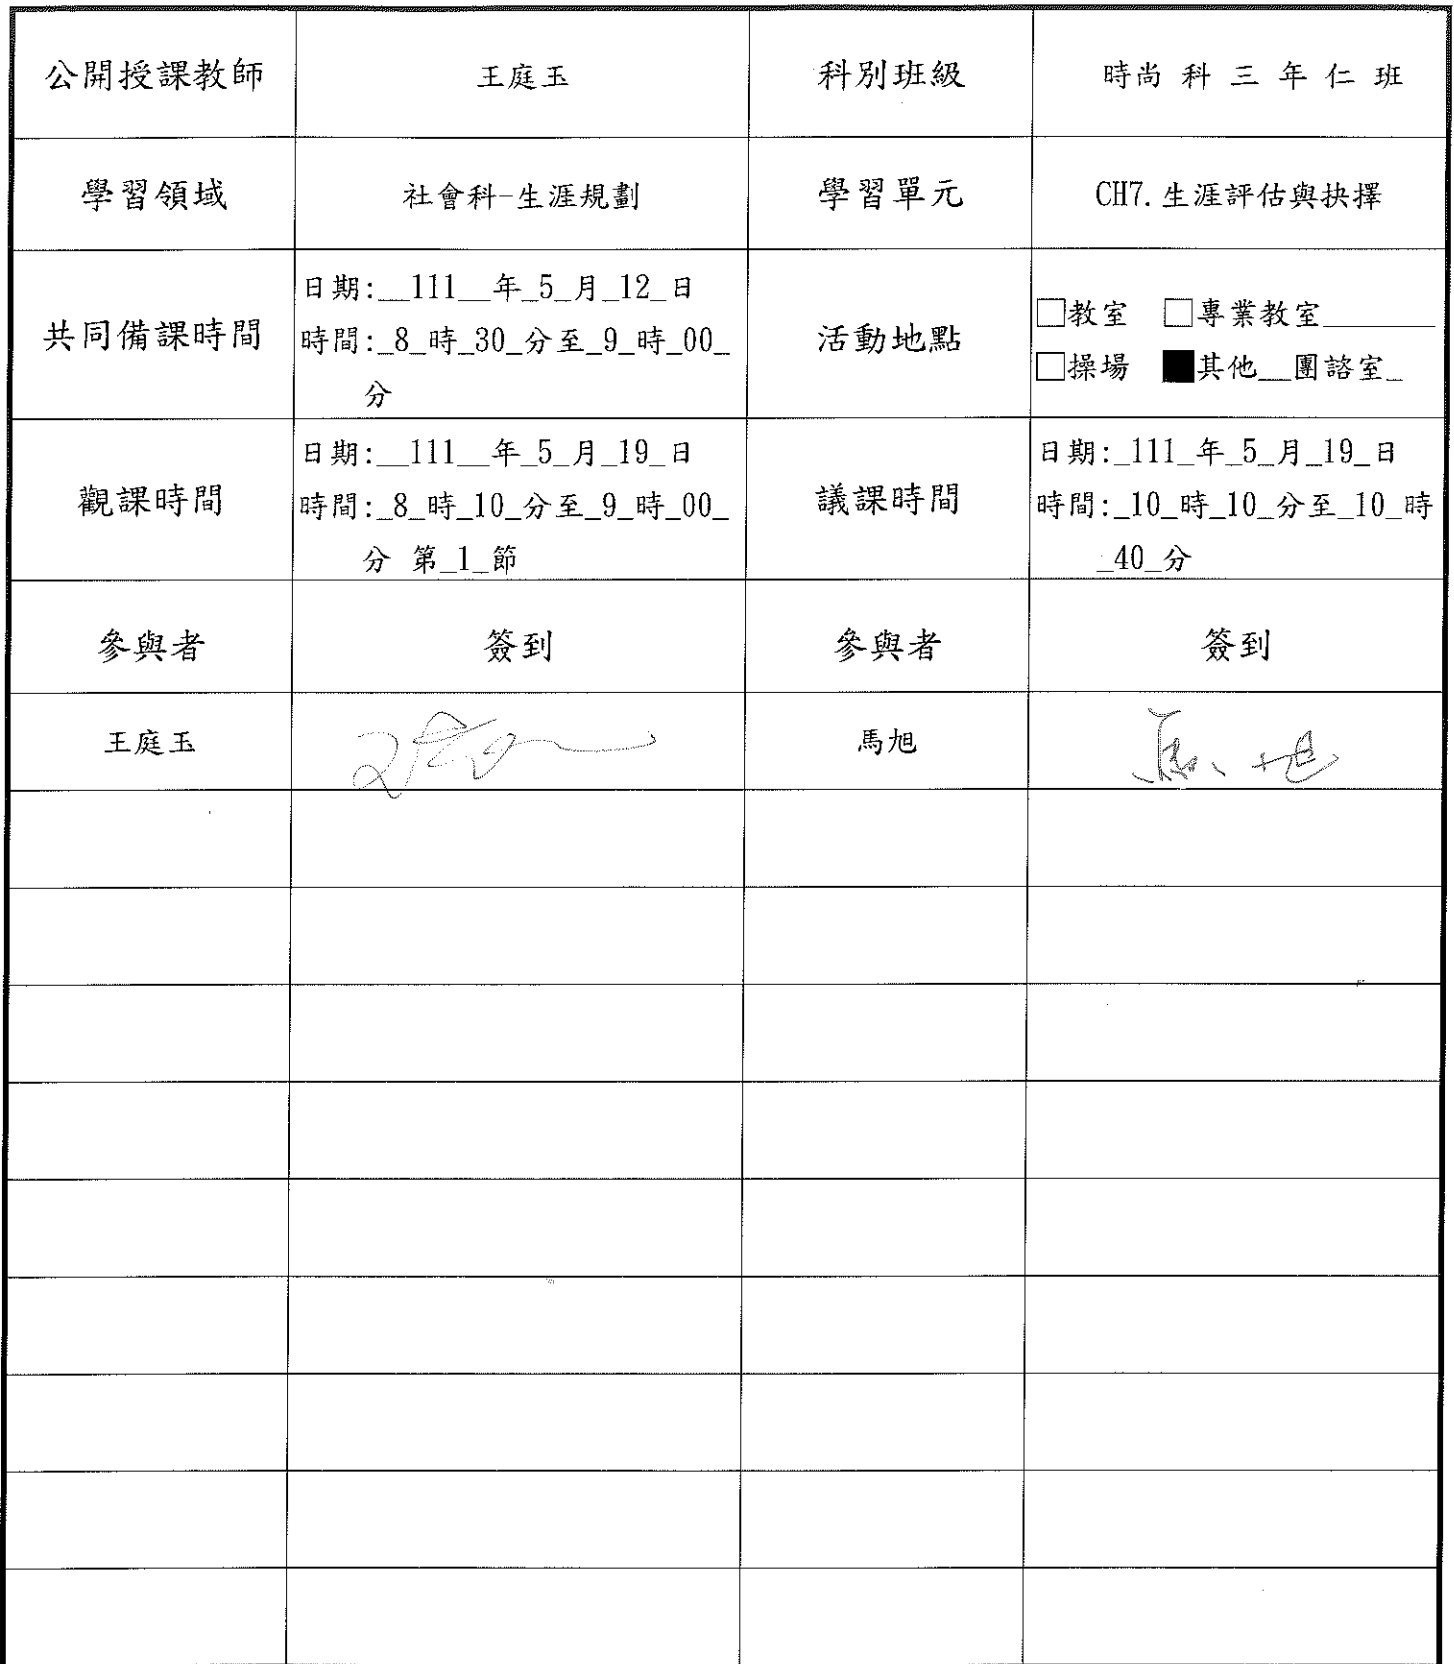 公開授課教師 王庭玉 科別班級 時尚 科 三 年 仁 班
學習領域 社會科-生涯規劃 學習單元 CH7.生涯評估與抉擇
共同備課時間
日期:__111__年_5_月_12_日
時間:_8_時_30_分至_9_時_00_
分
活動地點
□教室 □專業教室_______
□操場 ■其他__團諮室_
觀課時間
日期:__111__年_5_月_19_日
時間:_8_時_10_分至_9_時_00_
分 第_1_節
議課時間
日期:_111_年_5_月_19_日
時間:_10_時_10_分至_10_時
_40_分
參與者 簽到 參與者 簽到
王庭玉 馬旭 馬旭